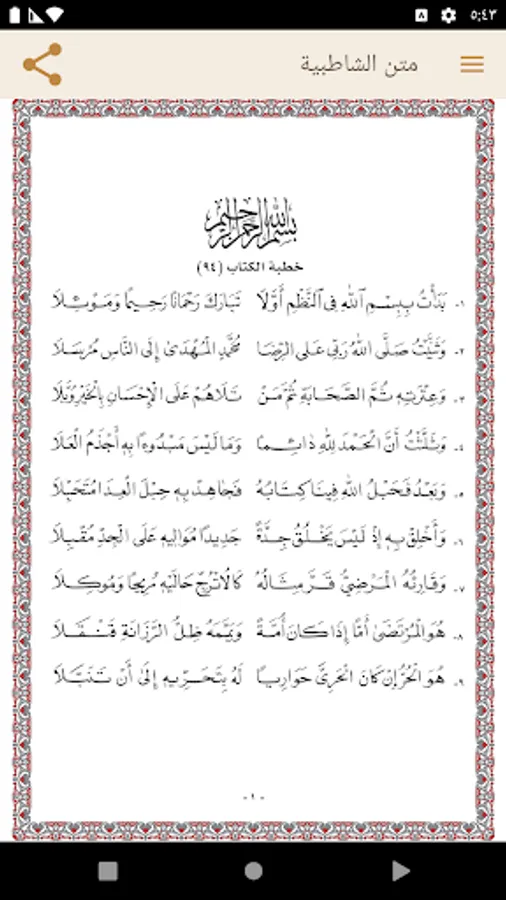 ٥:٤٣
متن الشاطبية
بسم الله الرحمن الرحيم
خطبة الكتاب (٩٤)
١. بَدَأْتُ بِبِسْمِ ٱللهِ فِى ٱلنَّظْمِ أَوَّلَا تَبَارَكَ رَحْمَانًا رَحِيمًا وَمَوْئِلَا
٢. وَثَنَّيْتُ صَلَّى اللهُ رَبِّى عَلَى الرِّضَا مُحَمَّدٍ الْمُهْدَىٰ إِلَى النَّاسِ مُرْسَلَا
٣. وَعِتْرَتِهِ ثُمَّ الصَّحَابَةِ ثُمَّ مَنْ تَلَاهُمْ عَلَى الْإِحْسَانِ بِالْخَيْرِ وُبَّلَا
٤. وَثَلَّثْتُ أَنَّ الْحَمْدَ لِلّٰهِ دَائِمًا وَمَا لَيْسَ مَبْدُوءًا بِهِ أَجْذَمُ الْعَلَا
٥. وَبَعْدُ فَحَبْلُ اللهِ فِينَا كِتَابُهُ فَجَاهِدْ بِهِ حِبْلَ الْعِدَا مُتَحَبِّلَا
٦. وَأَخْلِقْ بِهِ إِذْ لَيْسَ يَخْلُقُ جِدَّةً جَدِيدًا مُوَالِيهِ عَلَى الْجِدِّ مُقْبِلَا
٧. وَقَارِئُهُ الْمَرْضِيُّ قَرَّ مِثَالُهُ كَالُاتْرُجِّ حَالَيْهِ مُرِيحًا وَمُوكِلَا
٨. هُوَ الْمُرْتَضَىٰ أَمًّا إِذَا كَانَ أُمَّةً وَيَمَّمَهُ ظِلُّ الرَّزَانَةِ قَنْقَلَا
٩. هُوَ الْحُرُّ إِنْ كَانَ الْحَرِيَّ حَوَارِيًا لَهُ بِتَحَرِّيهِ إِلَىٰ أَنْ تَنَبَّلَا
- ١ -